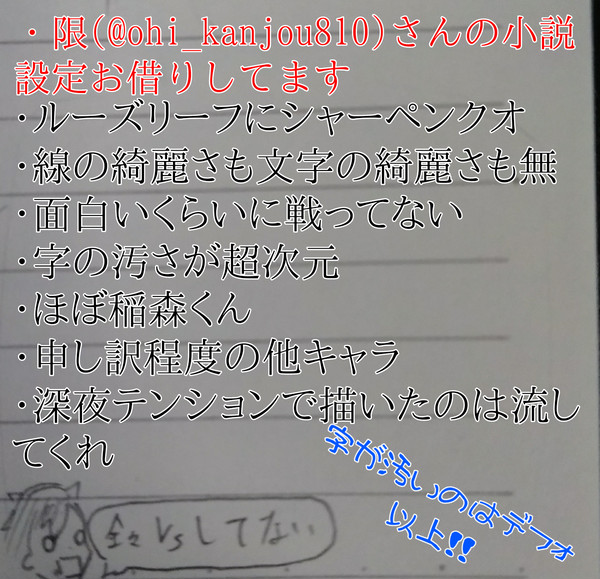 ・限(@ohi_kanjou810)さんの小説
設定お借りしてます
・ルーズリーフにシャーペンクオ
・線の綺麗さも文字の綺麗さも無
・面白いくらいに戦ってない
・字の汚さが超次元
・ほぼ稲森くん
・申し訳程度の他キャラ
・深夜テンションで描いたのは流し
てくれ
字が汚いのはデフォ
以上!!
全々VSしてない